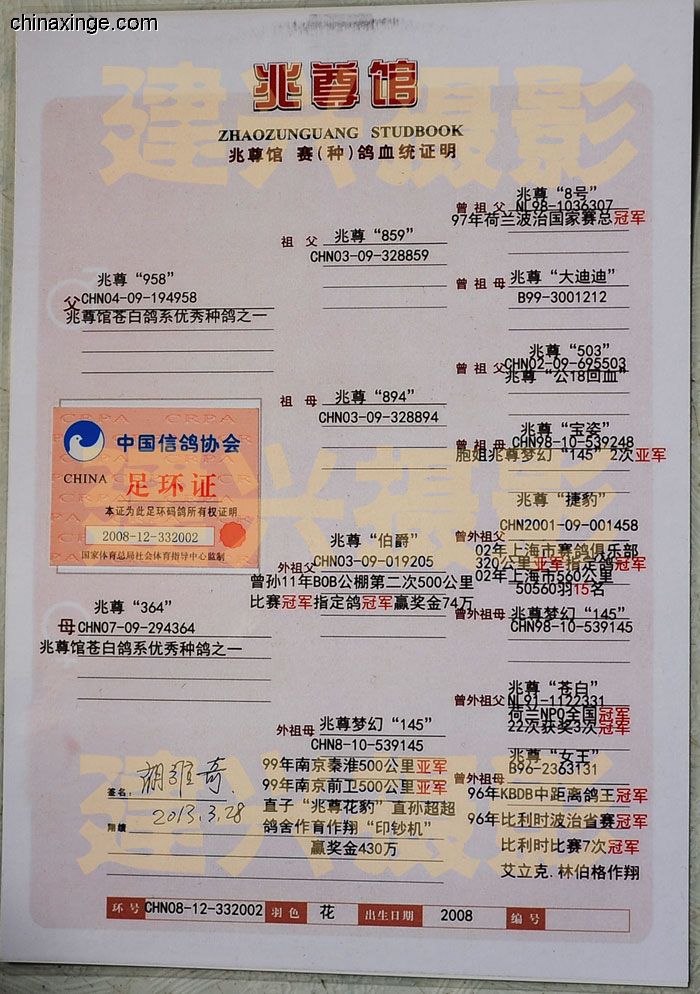 chinaxinge.com
兆尊馆
ZHAOZUNGUANG STUDBOOK
兆尊馆 赛(种)鸽血统证明
建兴摄影
父
兆尊“958”
CHN04-09-194958
兆尊馆苍白鸽系优秀种鸽之一
祖父
兆尊“859”
CHN03-09-328859
曾祖父
兆尊“8号”
NL98-1036307
97年荷兰波治国家赛总冠军
曾祖母
兆尊“大迪迪”
B99-3001212
祖母
兆尊“894”
CHN03-09-328894
曾祖父
兆尊“503”
CHN02-09-695503
兆尊“公18回血”
曾祖母
兆尊“宝姿”
CHN98-10-539248
胞姐兆尊梦幻“145”2次亚军
CRPA CRPA CRPA
中国信鸽协会
CHINA 足环证
本证为此足环码鸽所有权证明
2008-12-332002
国家体育总局社会体育指导中心监制
建兴摄影
母
兆尊“364”
CHN07-09-294364
兆尊馆苍白鸽系优秀种鸽之一
外祖父
兆尊“伯爵”
CHN03-09-019205
曾孙11年BOB公棚第二次500公里
比赛冠军指定鸽冠军赢奖金74万
曾外祖父
兆尊“捷豹”
CHN2001-09-001458
02年上海市赛鸽俱乐部
320公里亚军指定鸽冠军
02年上海市560公里
50560羽15名
曾外祖母
兆尊梦幻“145”
CHN98-10-539145
外祖母
兆尊梦幻“145”
CHN8-10-539145
99年南京秦淮500公里亚军
99年南京前卫500公里亚军
直子“兆尊花豹”直孙超超
鸽舍作育作翔“印钞机”
赢奖金430万
曾外祖父
兆尊“苍白”
NL91-1122331
荷兰NPO全国冠军
22次获奖3次冠军
曾外祖母
兆尊“女王”
B96-2363131
96年KBDB中距离鸽王冠军
96年比利时波治省赛冠军
比利时比赛7次冠军
艾立克.林伯格作翔
建兴摄影
签名:
翔绩:
2013.3.28
环号 CHN08-12-332002 羽色 花 出生日期 2008 编号